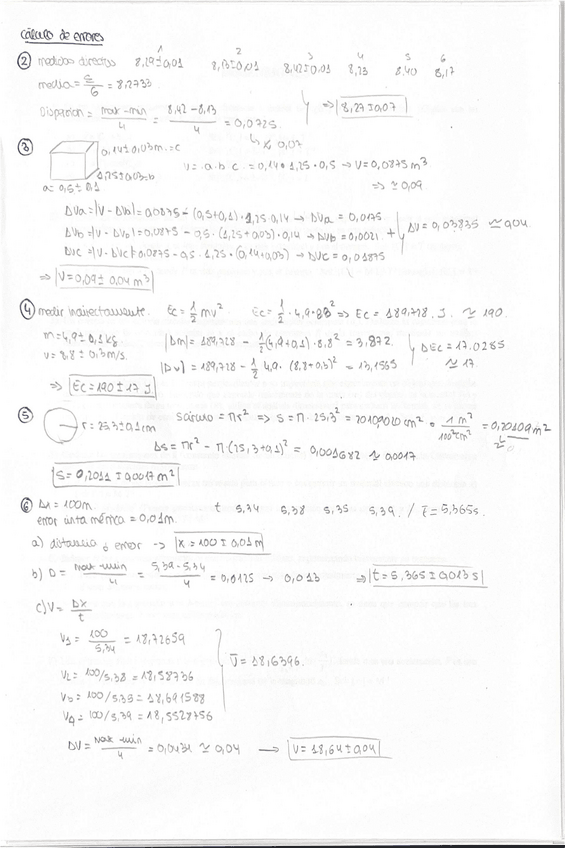 Cálculo de errores
② medidas directas 1 8,29±0,01 2 8,13±0,01 3 8,42±0,01 4 8,23 5 8,40 6 8,17
media = Σ/6 = 8,2733
Dispersion = max-min/4 = 8,42-8,13/4 = 0,0725. ⇒ 8,27±0,07
↳ ≈ 0,07
③ 0,14±0,03m=c
1,25±0,03=b
a=0,5±0,1
V = a·b·c = 0,14·1,25·0,5 → V=0,0875m³
⇒ ≃0,09
ΔVa=|V-ΔVa|=0,0875-(0,5+0,1)·1,25·0,14 → ΔVa=0,0175
ΔVb=|V-ΔVb|=0,0875-0,5·(1,25+0,03)·0,14 → ΔVb=0,0021 + ΔV=0,03835 ≃0,04
ΔVc=|V-ΔVc|=0,0875-0,5·1,25·(0,14+0,03) → ΔVc=0,01875
⇒ V=0,09±0,04m³
④ medir indirectamente. Ec=1/2 mv² Ec=1/2·4,9·8,8² ⇒ Ec=189,728 J. ≃190.
m=4,9±0,1kg
v=8,8±0,3m/s.
|Δm|=189,728-1/2(4,9+0,1)·8,8²=3,872
|Δv|=189,728-1/2 4,9·(8,8+0,3)²=13,1565
ΔEc=17,0285
≃17
⇒ Ec=190±17 J
⑤ r=25,3±0,1cm Scírculo=πr² ⇒ S=π·25,3²=2010,9020cm²·1m²/100²cm²=0,20109m²
ΔS=πr²-π(25,3+0,1)²=0,001682≃0,0017
S=0,2011±0,0017m²
⑥ Δx=100m t 5,34 5,38 5,35 5,39. / t̄=5,365s.
error cinta métrica=0,01m.
a) distancia ó error → x=100±0,01m
b) D=max-min/4=5,39-5,34/4=0,0125→0,013 ⇒ t=5,365±0,013s
c) V=Δx/t
V₁=100/5,34=18,72659
V₂=100/5,38=18,58736
V₃=100/5,35=18,691588
V₄=100/5,39=18,5528756
V̄=18,6396.
ΔV=max-min/4=0,0434≃0,04 → V=18,64±0,04